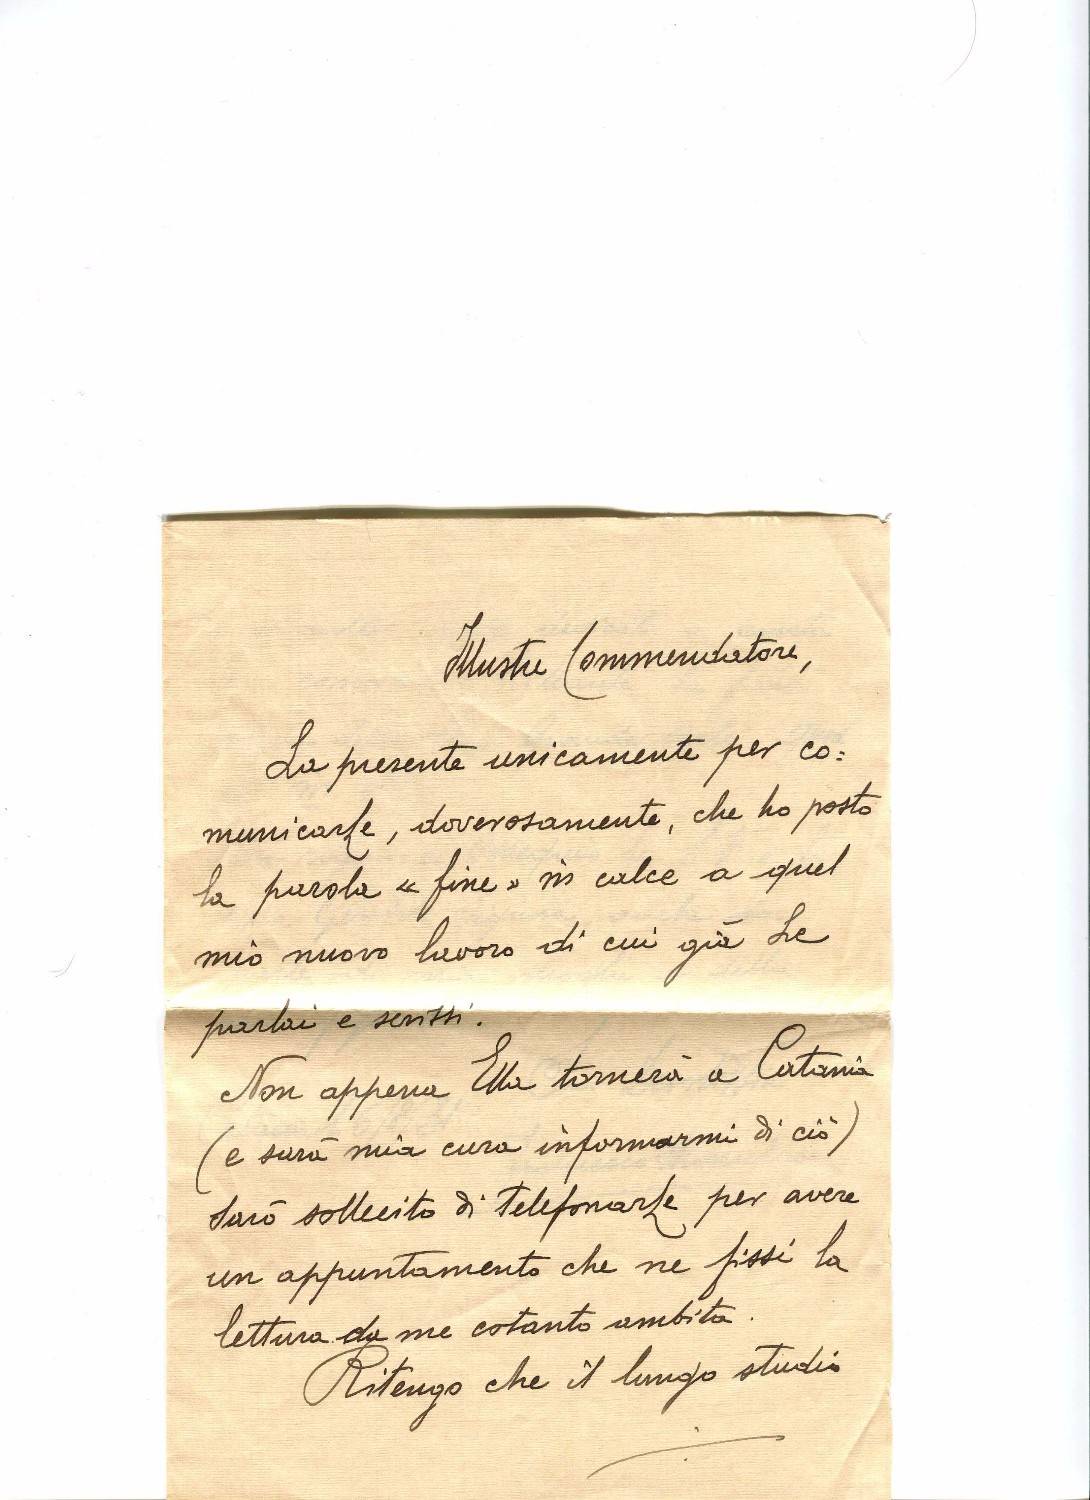 Illustre Commendatore,
La presente unicamente per co=
municarLe, doverosamente, che ho posto
la parola « fine » in calce a quel
mio nuovo lavoro di cui già Le
parlai e scrissi.
Non appena Ella tornerà a Catania
(e sarà mia cura informarmi di ciò)
sarò sollecito di telefonarLe per avere
un appuntamento che ne fissi la
lettura da me cotanto ambita.
Ritengo che il lungo studio